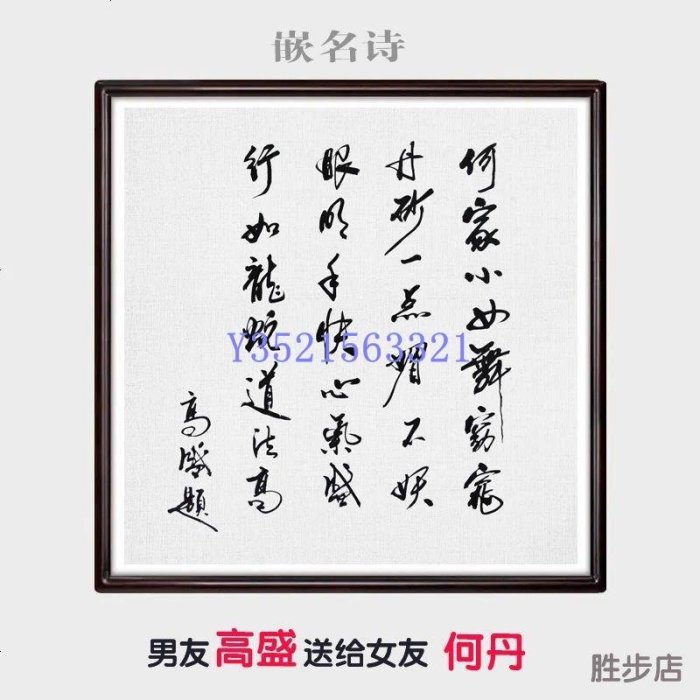 嵌名诗
何家小女舞窈窕
丹砂一点媚不妖
眼明手快心氣盛
行如龍蛇道法高
高盛題
Y3521563321
男友高盛送给女友 何丹
胜步店